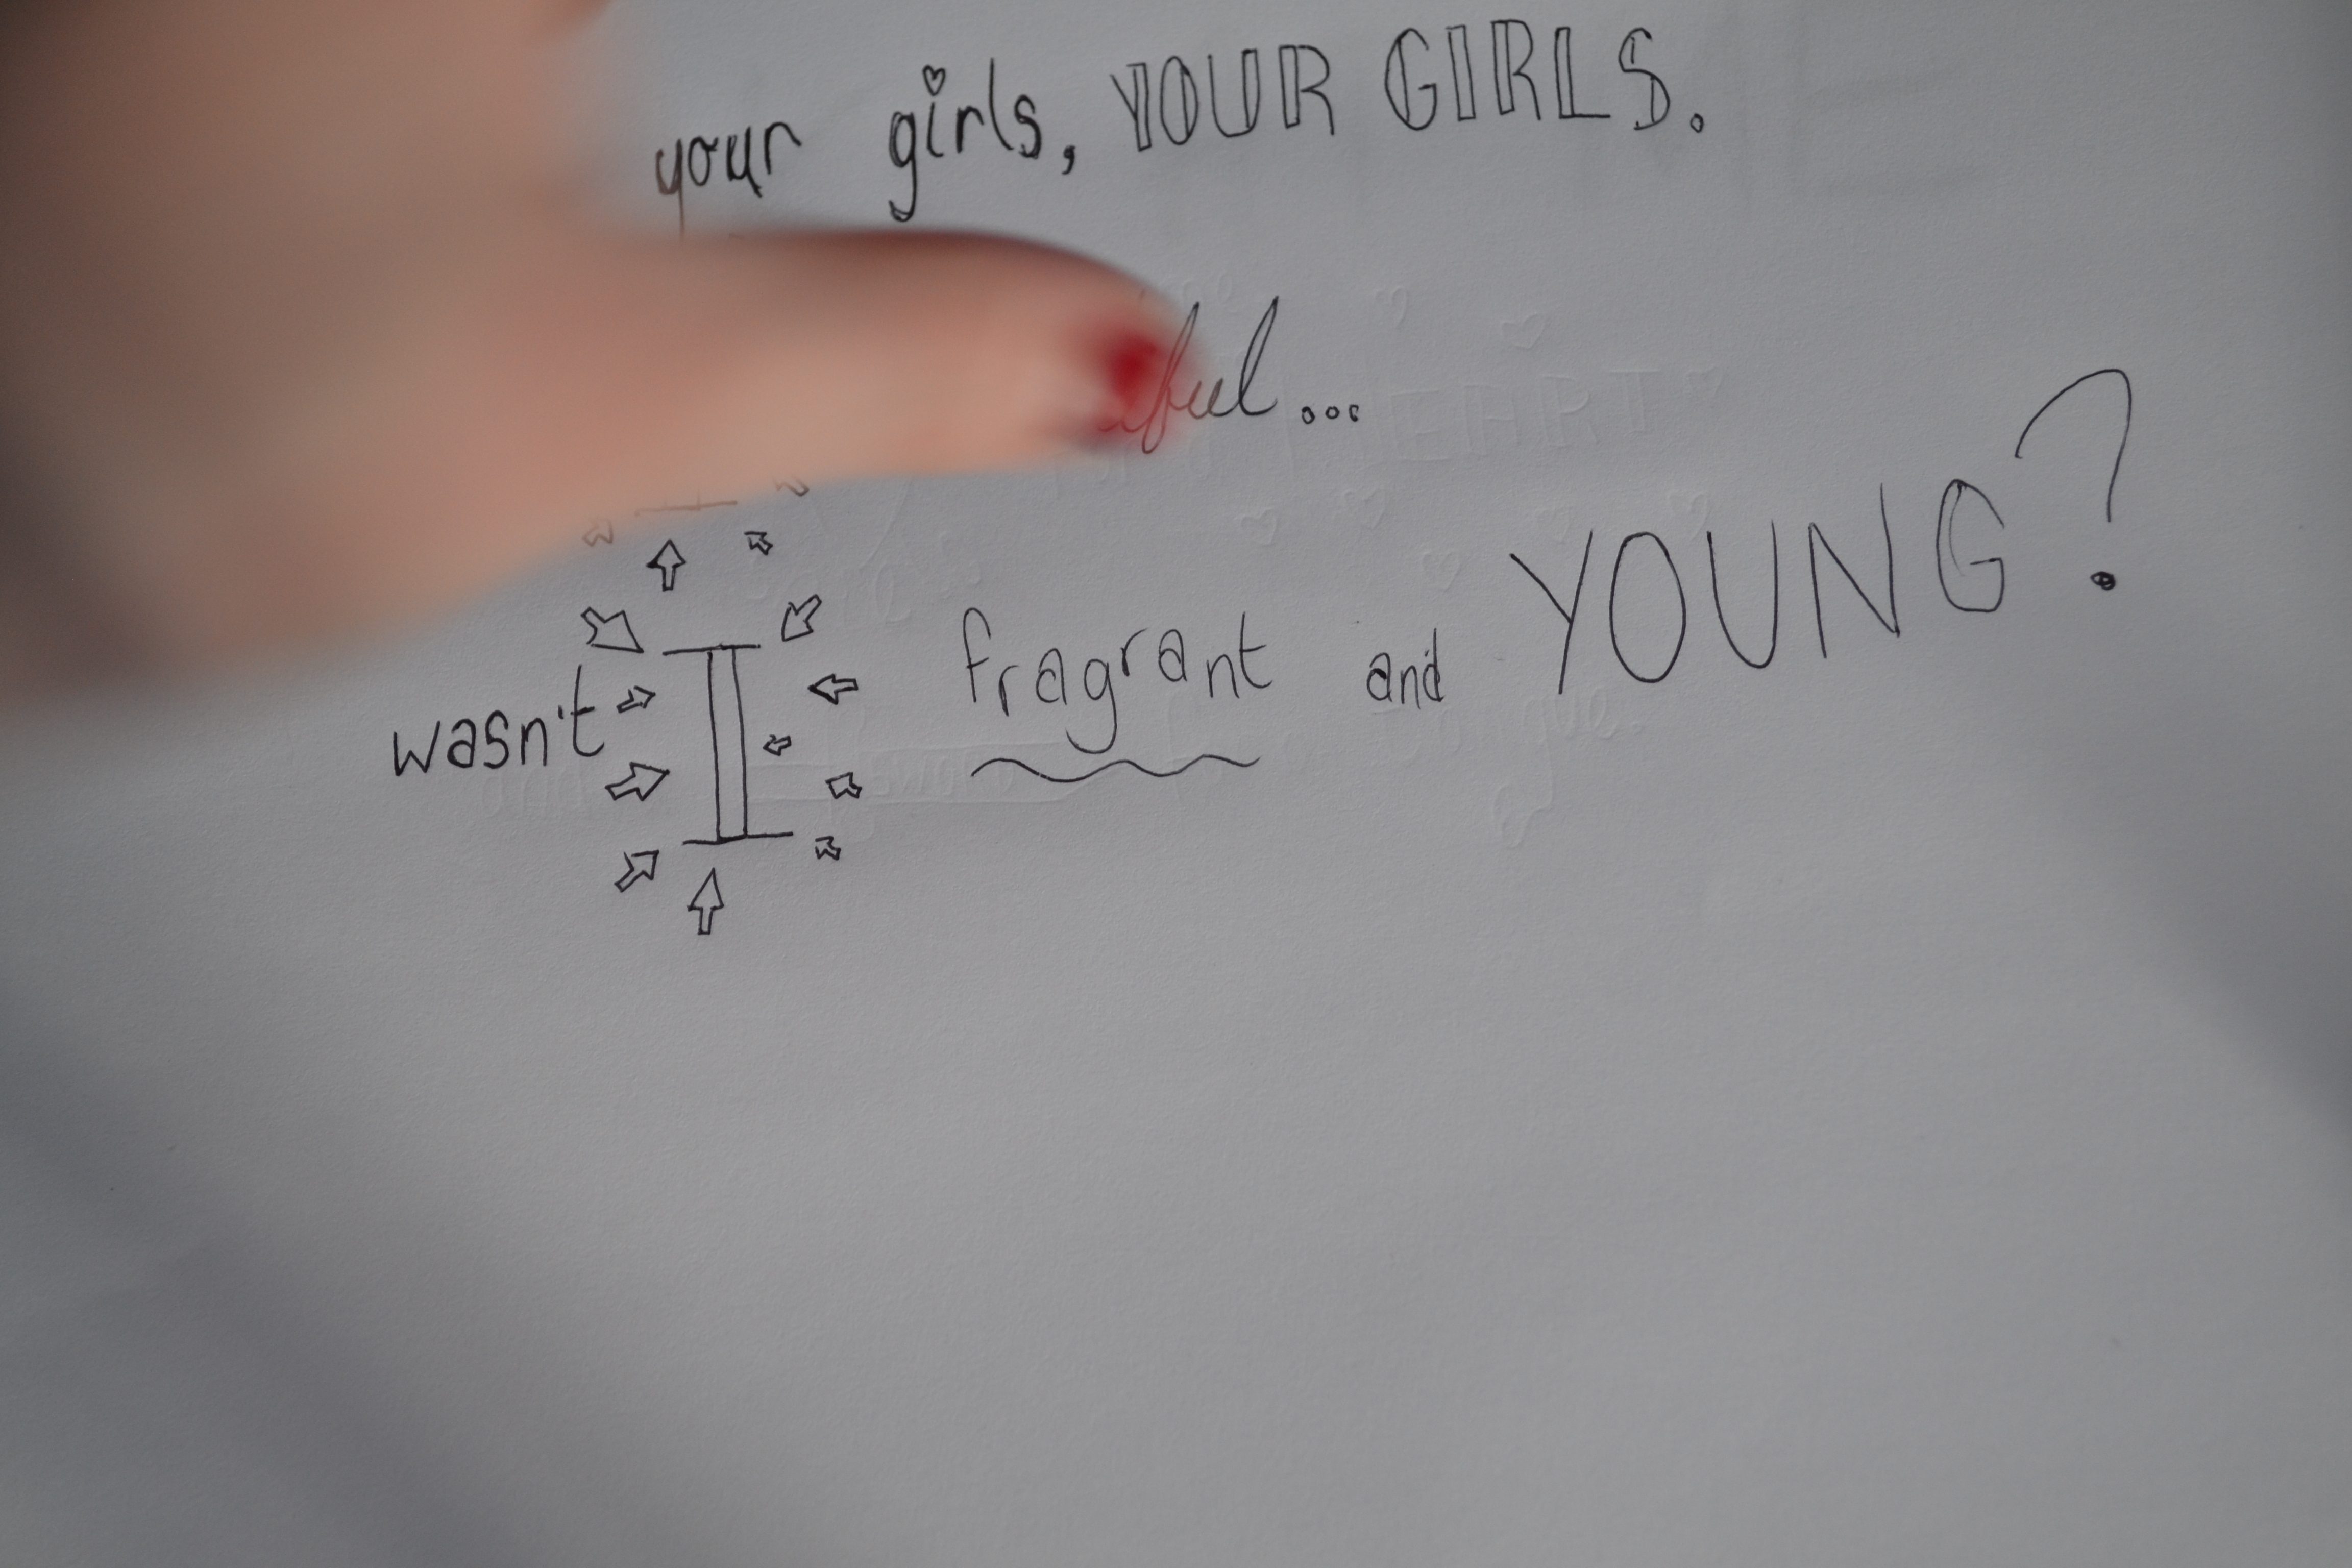 your girls, YOUR GIRLS.
wasn't I fragrant and YOUNG?